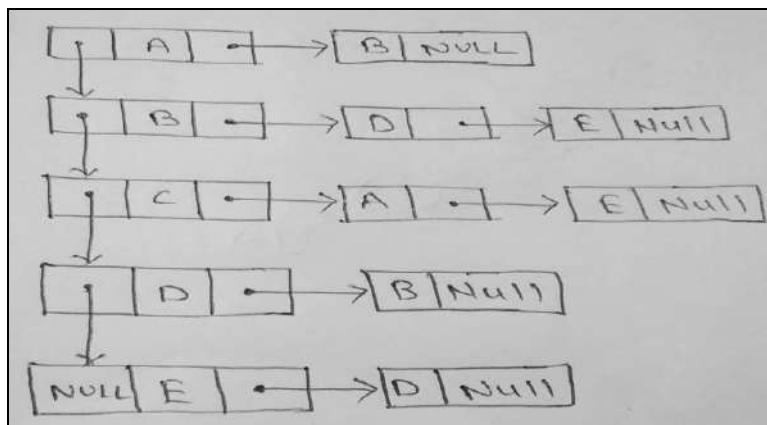 A B NULL
B D E Null
C A E Null
D B Null
NULL E D Null